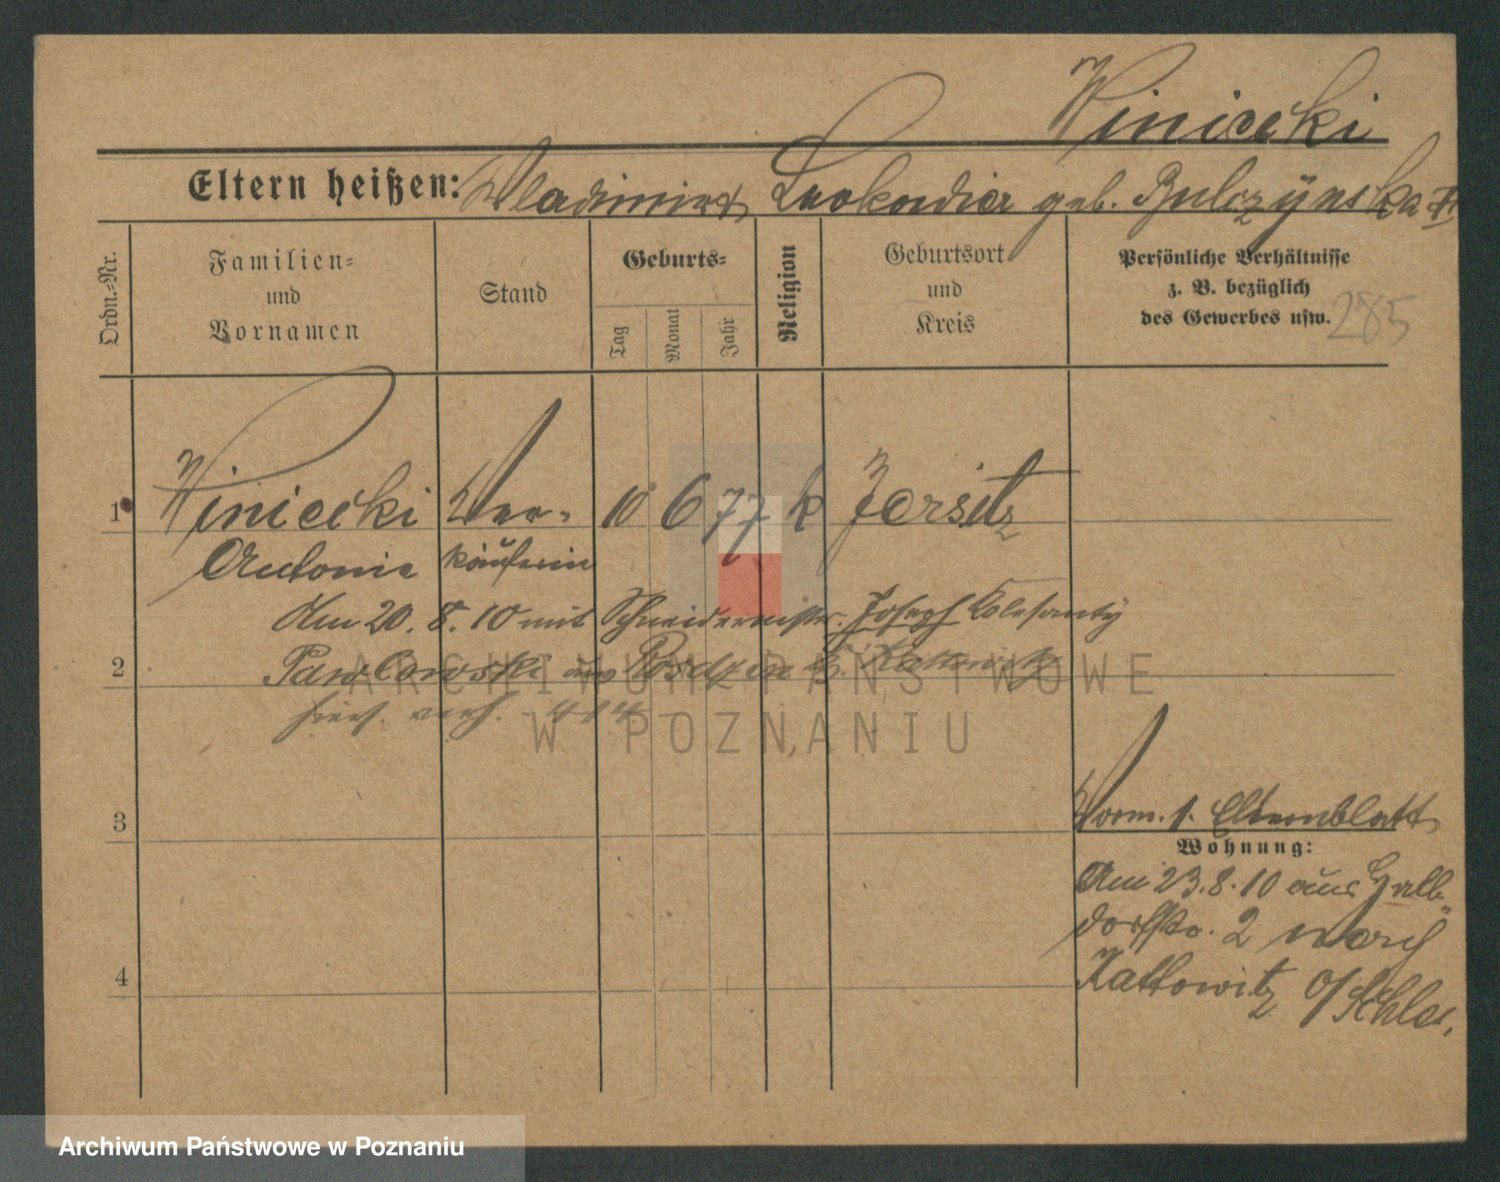 Winiecki
Eltern heißen: Wladimir Leokadia geb. Bulczynska
Ordn.=Nr.
Familien=
und
Vornamen
Stand
Geburts=
Tag
Monat
Jahr
Religion
Geburtsort
und
Kreis
Persönliche Verhältnisse
z. B. bezüglich
des Gewerbes usw.
285
1 Winiecki Ver- 10 6 77 k Jersitz
Antonie käuferin
Am 20.8.10 mit Schneidermstr. Joseph
2 Pawlowski aus Rosdzin K. Kattowitz
hier verh.
3
Vorm. 1. Elternblatt
Wohnung:
Am 23.8.10 aus Halb-
dorfstr. 2 nach
4 Kattowitz O/Schles.
ARCHIWUM PAŃSTWOWE
W POZNANIU
Archiwum Państwowe w Poznaniu